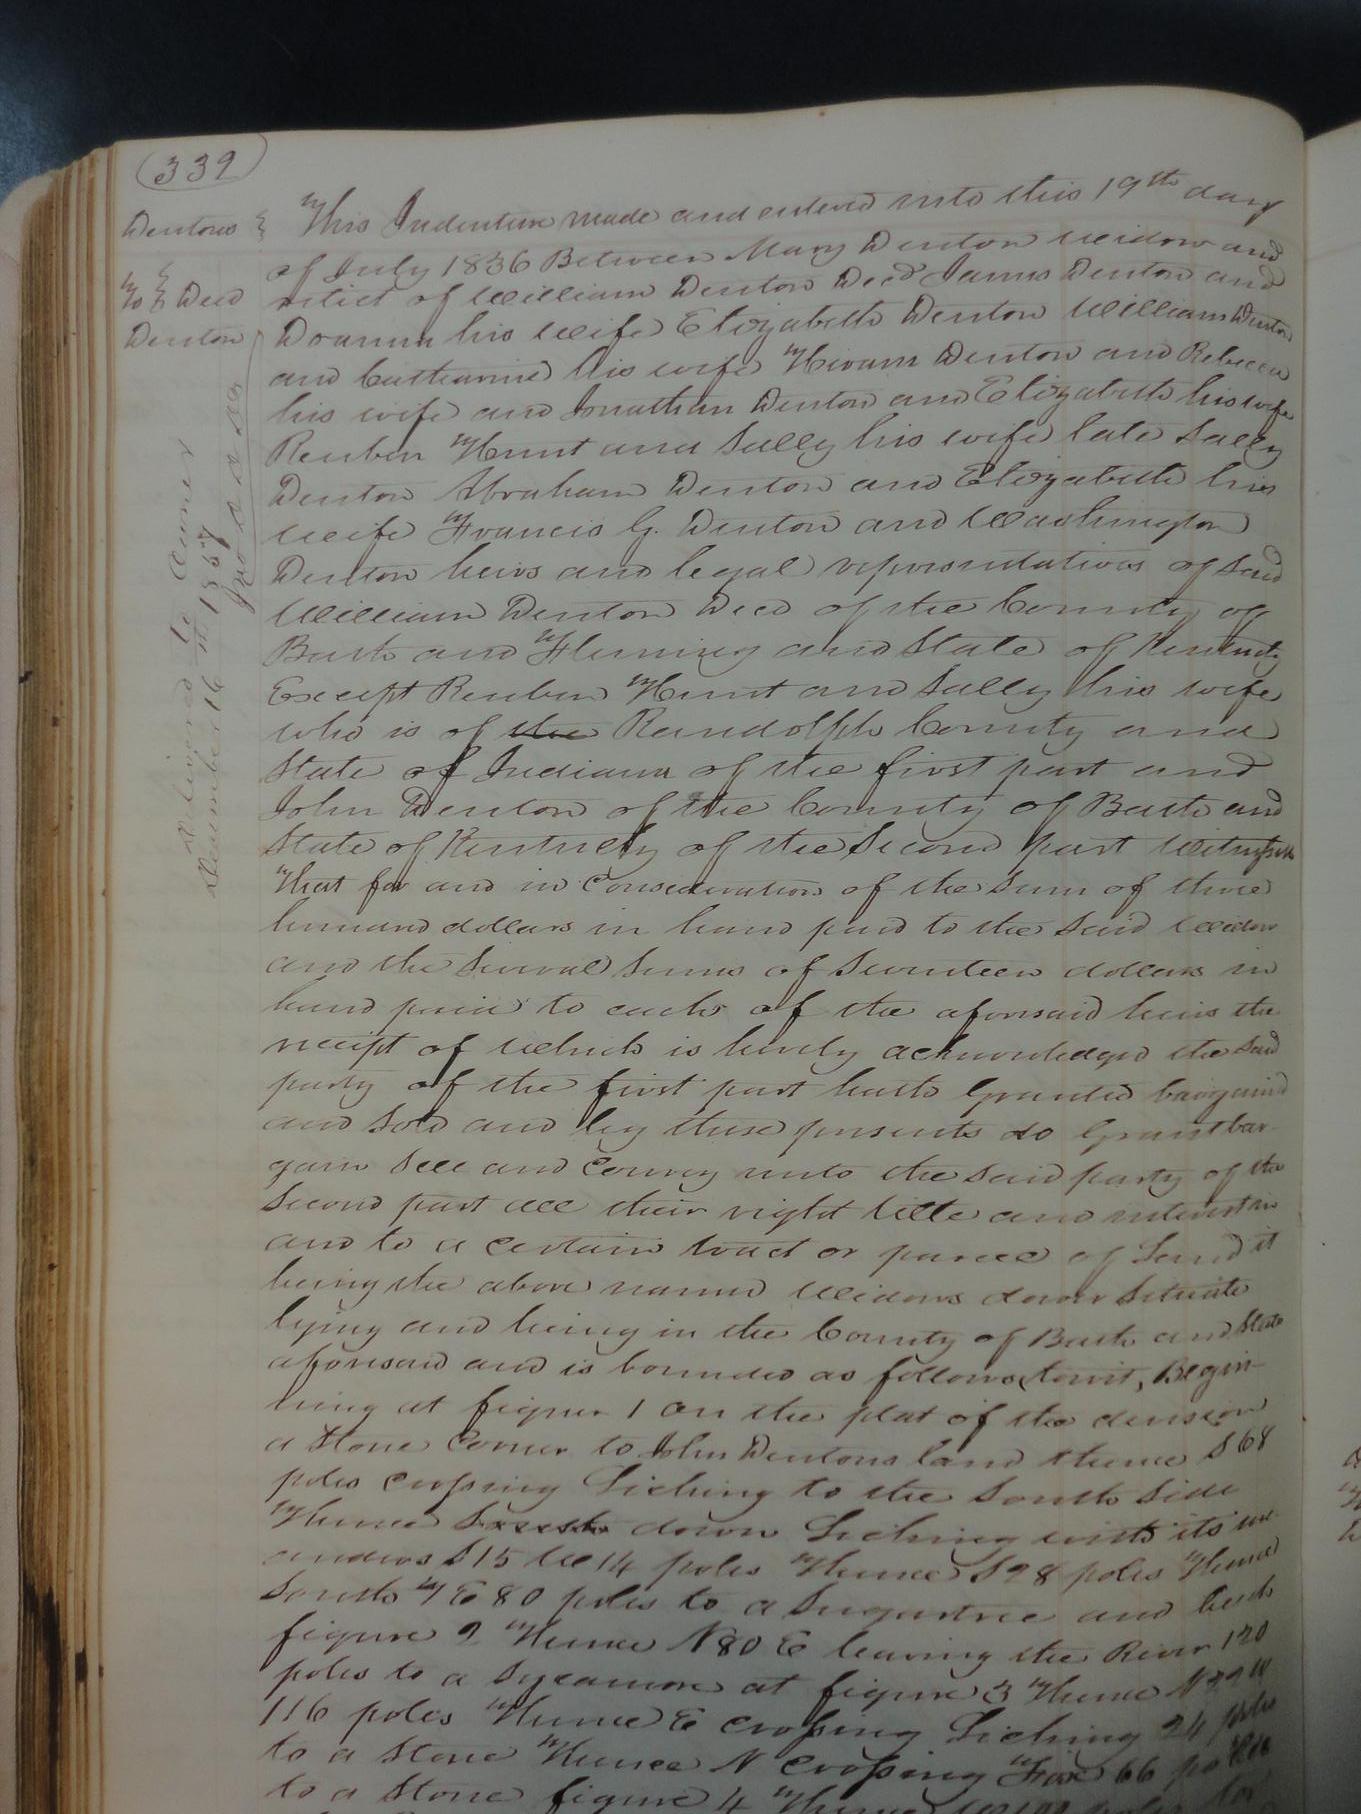 339
Dentons
To Deed
Denton
Delivered to
December 16th 1857
This Indenture made and entered into this 19th day
of July 1836 Between Mary Denton widow and
relict of William Denton Decd James Denton and
his wife Elizabeth Denton William Denton
and Catharine his wife Hiram Denton and Rebecca
his wife and Jonathan Denton and Elizabeth his wife
Reuben Hunt and Sally his wife late Sally
Denton Abraham Denton and Elizabeth his
wife Francis G. Denton and Washington
Denton heirs and legal representatives of said
William Denton Decd of the County of
Bath and Fleming and State of Kentucky
Except Reuben Hunt and Sally his wife
who is of the Randolph County and
State of Indiana of the first part and
John Denton of the County of Bath and
State of Kentucky of the Second part Witnesseth
That for and in Consideration of the Sum of three
hundred dollars in hand paid to the Said Widow
and the Several Sums of Seventeen dollars in
hand paid to each of the aforesaid heirs the
receipt of which is hereby acknowledged the said
party of the first part hath Granted bargained
and Sold and by these presents do Grant bar-
gain Sell and Convey unto the Said party of the
Second part all their right title and interest in
and to a certain tract or parcel of Land it
being the above named Widows dower Situate
lying and being in the County of Bath and State
aforesaid and is bounded as follows (towit, Begin-
ning at figure 1 on the plat of the division
a Stone Corner to John Dentons land thence S 68
poles crossing Licking to the South Side
Thence down Licking with its me-
anders S 15 W 14 poles Thence S 28 poles Thence
South 7 E 80 poles to a Sugartree and beech
figure 2 Thence N 80 E leaving the River 120
poles to a Sycamore at figure 3 Thence N
116 poles Thence E crossing Licking 24 poles
to a Stone Thence N Crossing 66 poles
to a Stone figure 4 Thence